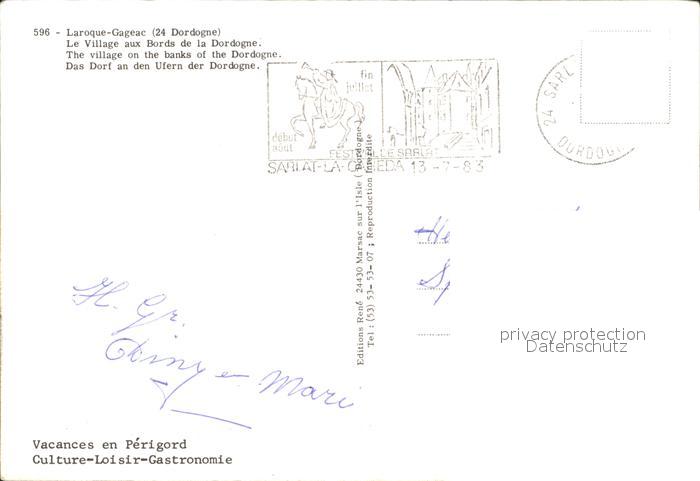 596 - Laroque-Gageac (24 Dordogne)
Le Village aux Bords de la Dordogne.
The village on the banks of the Dordogne.
Das Dorf an den Ufern der Dordogne.
fin
juillet
début
août
SARLAT-LA-CANEDA 13-7-83
24 SARL
DORDOGN
Editions René 24430 Marsac sur l'Isle (Dordogne)
Tel : (53) 53-53-07 ; Reproduction Interdite
He
Sp
H. Gr.
en Mari
privacy protection
Datenschutz
Vacances en Périgord
Culture-Loisir-Gastronomie